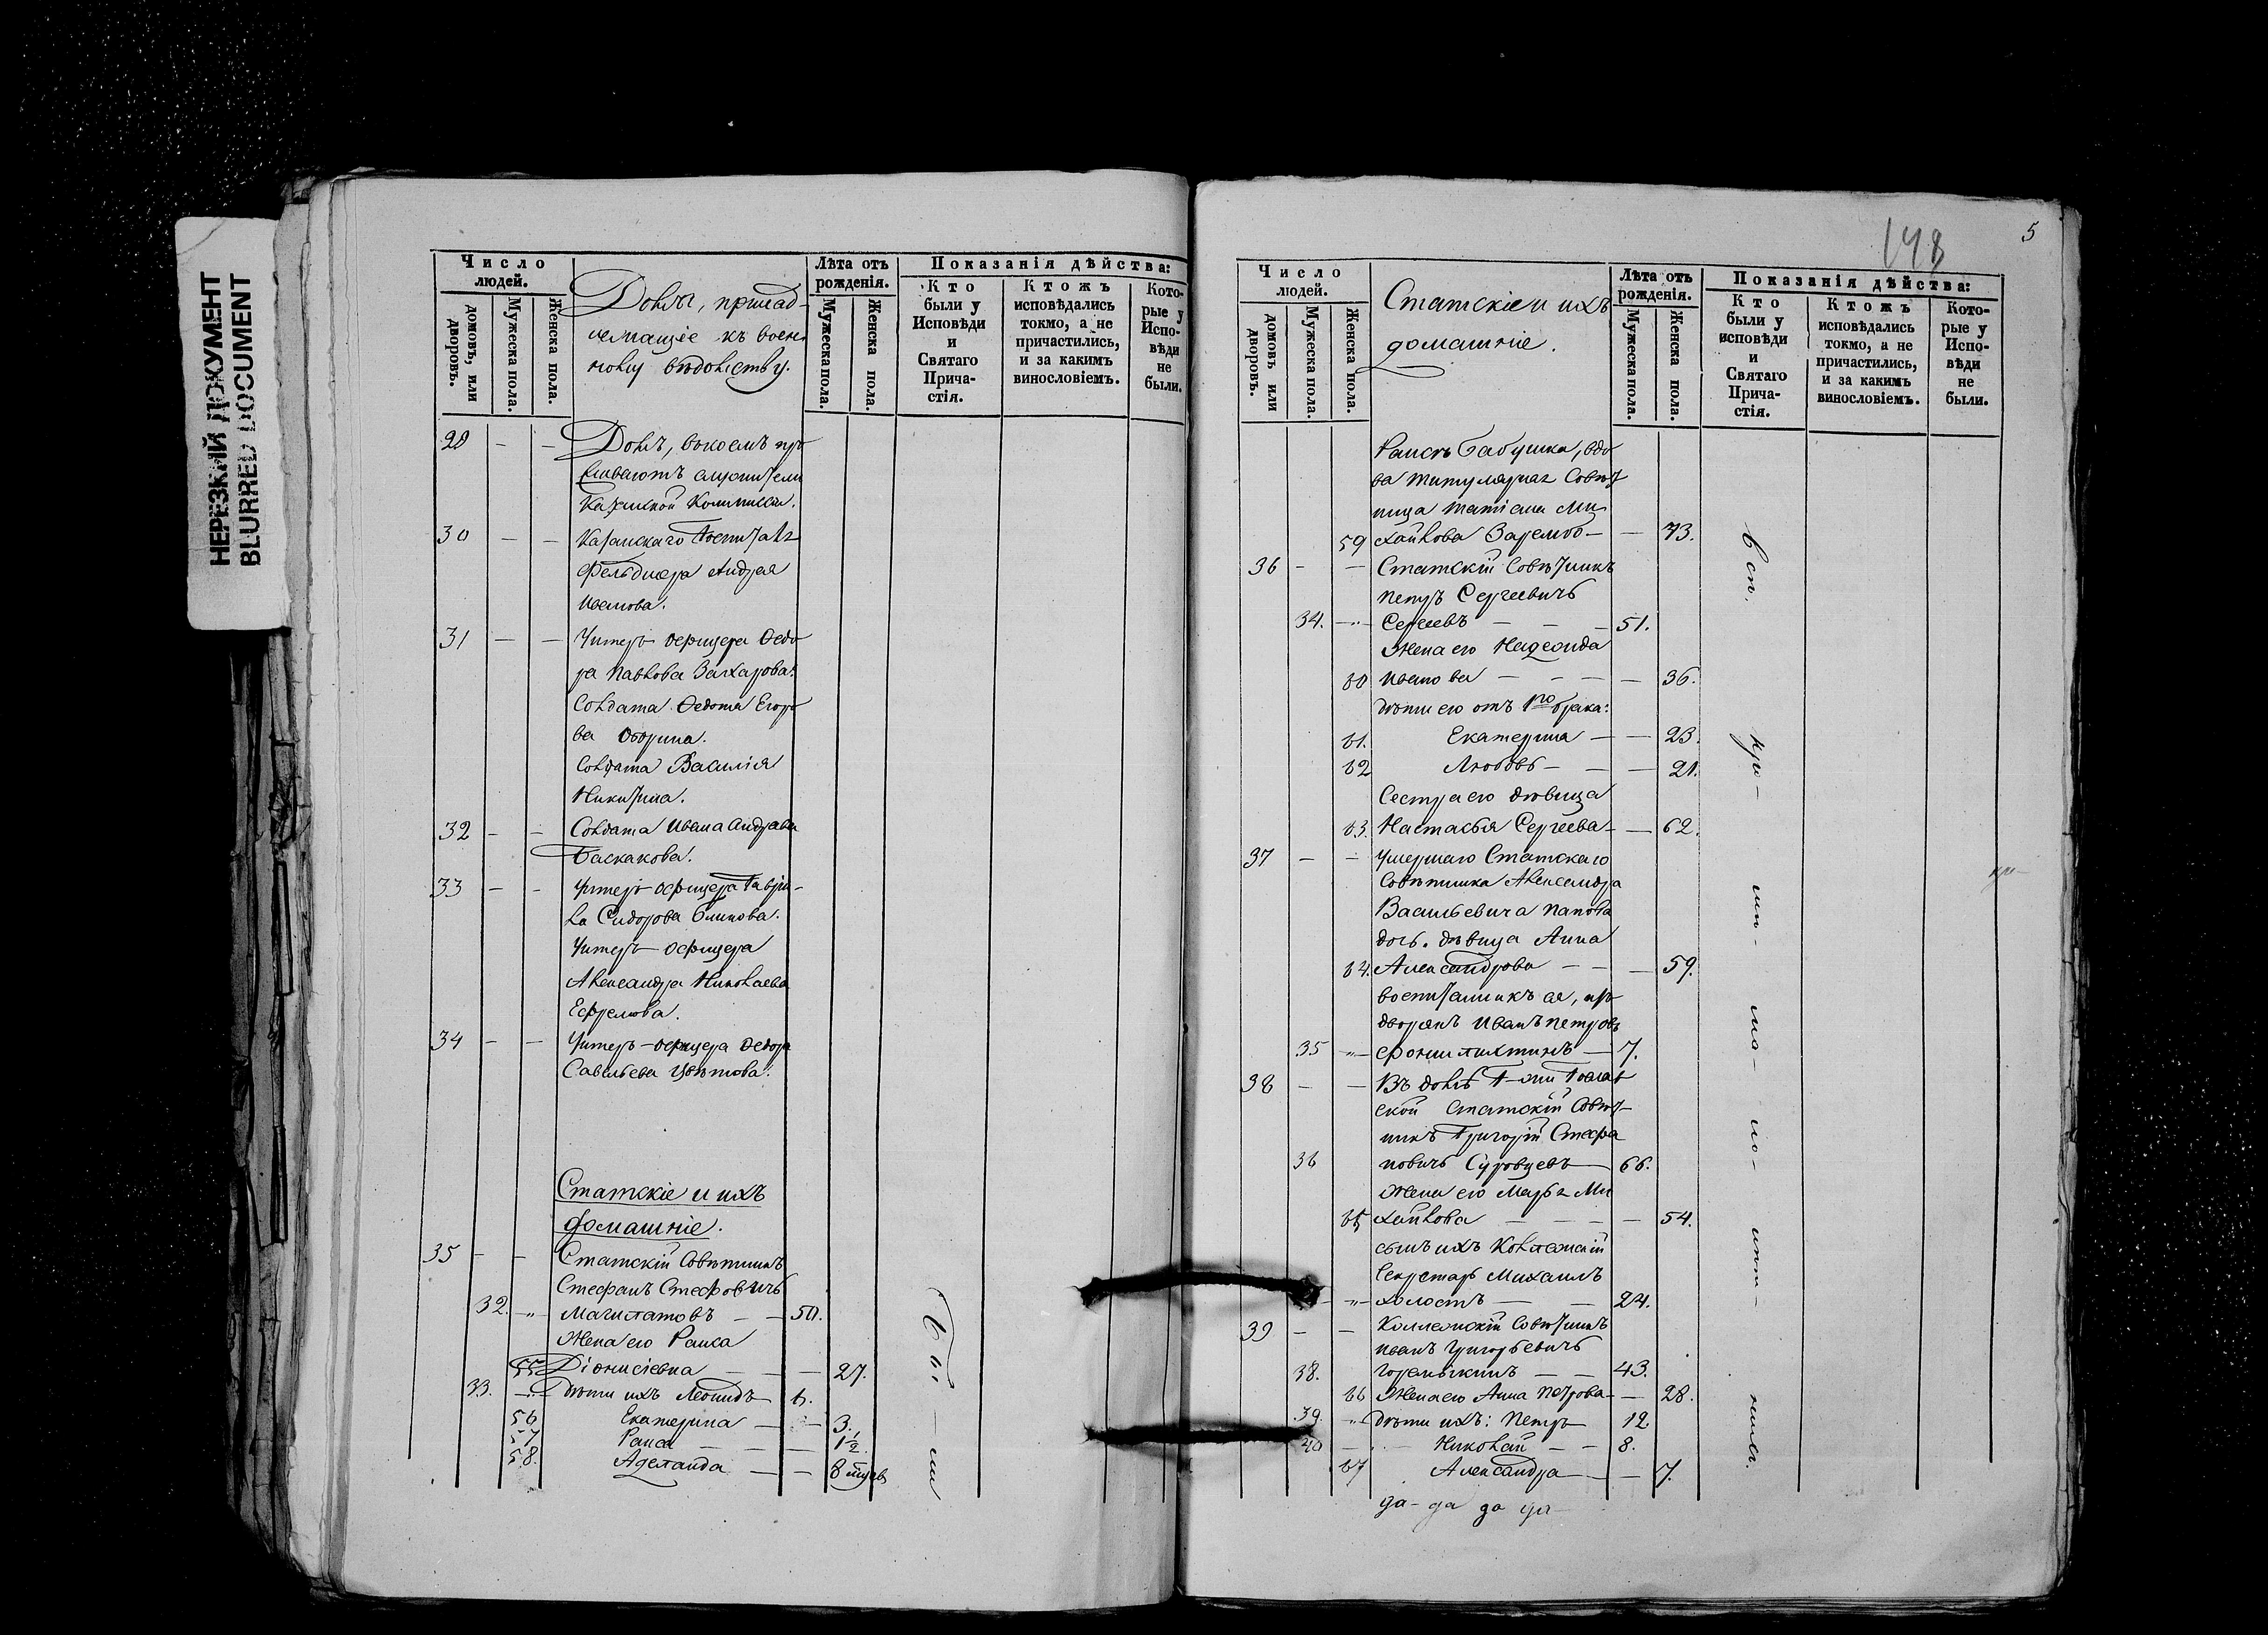 НЕРЕЗКИЙ ДОКУМЕНТ
BLURRED DOCUMENT
Число
людей.
домовъ, или
дворовъ.
Мужеска пола.
Женска пола.
Домы, принад-
лежащіе къ воен-
ному вѣдомству.
Лѣта отъ
рожденія.
Мужеска пола.
Женска пола.
Показанія дѣйства:
Кто
были у
Исповѣди
и
Святаго
Прича-
стія.
Ктожъ
исповѣдались
токмо, а не
причастились,
и за какимъ
винословіемъ.
Кото-
рые у
Испо-
вѣди
не
были.
29 — — Домъ, въ коемъ про
живаютъ служители
Казенной Коммиссіи.
30 — — Казанскаго Госпиталя
Фельдшера Андрея
Иванова.
31 — — Унтеръ-офицера Ѳедо
ра Павлова Захарова.
Солдата Ѳедота Егоро
ва
Солдата Василія
Никитина.
32 — — Солдата Ивана Андреева
Баскакова.
33 — — Унтеръ-офицера Гаври-
ла Сидорова Блинова.
Унтеръ-офицера
Александра Николаева
Ефремова.
34 — — Унтеръ-офицера Ѳедора
Савельева Цвѣтова.
Статскіе и ихъ
домашніе.
35 — — Статскій Совѣтникъ
Стефанъ
32. —"— — — 50.
Жена его Раиса
55 Діонисіевна — — — 27.
33. —"— Дѣти ихъ Леонидъ — 6.
56 Екатерина — — 3.
57 Раиса — — — 1½.
58. Аделаида — — 8 мѣсяц
148
5
Число
людей.
домовъ или
дворовъ.
Мужеска пола.
Женска пола.
Статскіе и ихъ
домашніе.
Лѣта отъ
рожденія.
Мужеска пола.
Женска пола.
Показанія дѣйства:
Кто
были у
исповѣди
и
Святаго
Прича-
стія.
Ктожъ
исповѣдались
токмо, а не
причастились,
и за какимъ
винословіемъ.
Кото-
рые у
Испо-
вѣди
не
были.
Раисы бабушка, вдо
ва титулярная Совѣт
ница Татіана Ми
59 хайлова Зарембо — — 73.
36 — — Статскій Совѣтникъ
Петръ Сергеевичъ
34. —"— Сергеевъ — — — 51.
Жена его
60 Иванова — — — — 36.
Дѣти его отъ 1го брака:
61. Екатерина — — 23.
62 Любовь — — — 21.
Сестра его дѣвица
63. Настасья Сергеева — — 62.
37 — — Умершаго Статскаго
Совѣтника Александра
Васильевича Попова
дочь. дѣвица Анна
64. Александрова — — — 59.
воспитанникъ ея, изъ
дворянъ Иванъ Петровъ
35 —"— — 7.
38 — — Въ домѣ Г-жи
ской Статскій Совѣт-
никъ Григорій Стефа
36 новичъ Суровцевъ — 66.
Жена его Марья Ми
65 хайлова — — — — 54.
сынъ ихъ Коллежскій
Секретарь Михаилъ
—"— холостъ — — 24.
39 — — Коллежскій Совѣтникъ
Иванъ Григорьевичъ
38. — — 43.
66 Жена его Анна Петрова — — 28.
39. —"— Дѣти ихъ: Петръ 12.
40 — Николай — — 8.
67 Александра — — 7.